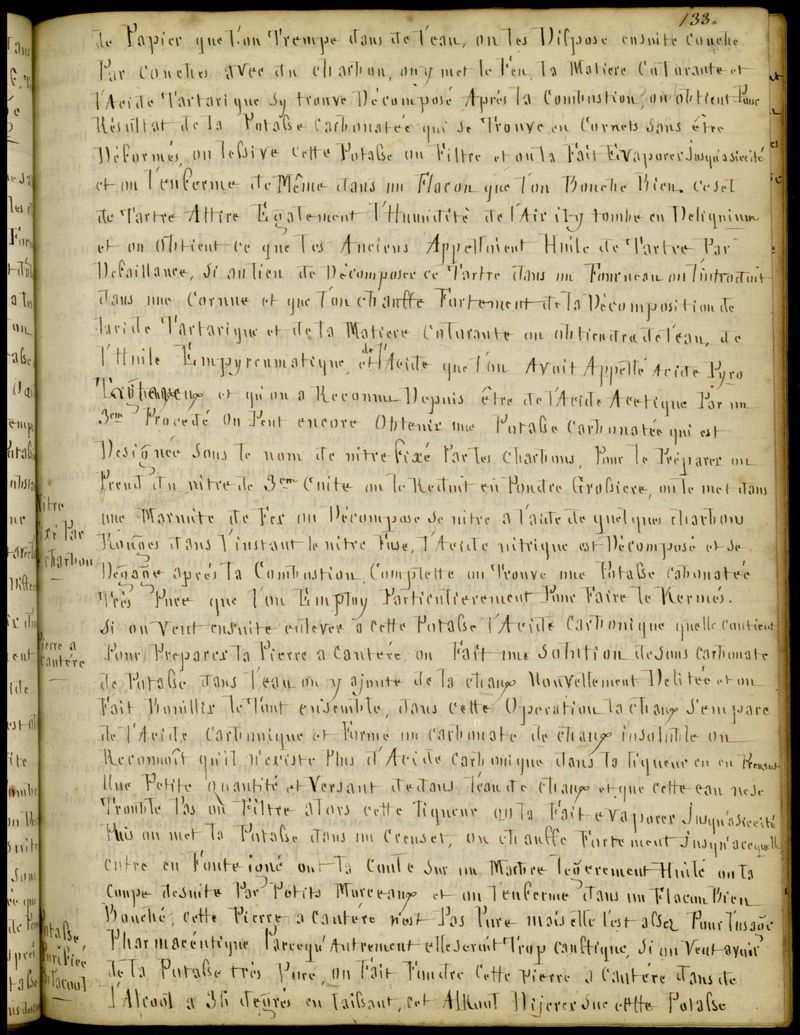 133.
de Papier que l'on Trempe dans de l'eau, on les Dispose ensuite Couche
Par Couches avec du charbon, on y met le Feu, la Matiere Colorante et
l'Acide Tartarique sy trouve Décomposé Après la Combustion, on obtient Pour
Résultat de la Potaße Carbonatée qui se Trouve en Cornets sans être
Déformés, on leßive cette Potaße on Filtre et on la Fait Evaporer Jusqu'asiccité
et on l'enferme de Même dans un Flacon que l'on Bouche Bien. Ce sel
de Tartre Attire Egalement l'Humidité de l'Air il y tombe en Deliquium
et on Obtient ce que les Anciens Appelloient Huile de Tartre Par
Defaillance, Si au lieu de Décomposer ce Tartre dans un Fourneau on l'introduit
dans une Cornue et que l'on chauffe Fortement de la Décomposition de
lacide Tartarique et de la Matiere Colorante on obtiendra de l'eau, de
l'Huile Empyreumatique et de l'Acide que l'on Avoit Appellé Acide Pyro
et qu'on a Reconnu Depuis être de l'Acide Acetique Par un
3eme Procédé On Peut encore Obtenir une Potaße Carbonatée qui est
Designée Sous le nom de nitre fixé Par les Charbons, Pour le Préparer on
Prend du nitre de 3eme Cuite on le Reduit en Poudre Großiere, on le met dans
une Marmite de Fer on Décompose se nitre a l'aide de quelques charbons
Rouges dans l'instant le nitre Fuse, l'Acide nitrique est Décomposé et se
Dégage après la Combustion Complette on Trouve une Potaße Cabonatée
Très Pure que l'on Employ Particulierement Pour Faire le Kermés.
Si on Veut ensuite enlever a cette Potaße l'Acide Carbonique quelle Contient
Pour Preparer la Pierre a Cautére, on Fait une Solution de Sous Carbonate
de Potaße dans l'eau on y ajoute de la chaux Nouvellement Delitée et on
Fait Bouillir le Tout ensemble, dans cette Operation la chaux S'empare
de l'Acide Carbonique et Forme un Carbonate de chaux insoluble on
Reconnoît qu'il n'existe Plus d'Acide Carbonique dans la liqueur en en Prenant
Une Petite Quantité et Versant dedans l'eau de chaux et que cette eau ne se
Trouble Pas on Filtre alors cette liqueur on la Fait evaporer Jusqu'asiccité
Puis on met la Potaße dans un Creuset, on chauffe Fortement Jusqu'acequelle
Entre en Fonte ignée on la Coule Sur un Marbre legerement Huilé on la
Coupe de suite Par Petits Morceaux et on l'enferme dans un Flacon Bien
Bouché, cette Pierre a Cautére n'est Pas Pure mais elle l'est aßez Pour l'usage
Pharmaceutique Parcequ'Autrement elle seroit Trop Caustique, Si on Veut avoir
de la Potaße très Pure, on Fait Fondre Cette Pierre a Cautére dans de
l'Alcool a 36 degrés en laißant, cet Alkool Digerer Sur cette Potaße
Nitre
fixé Par
Charbon
Pierre a
Cautére
Potaße
Purifiée
Par l'acool